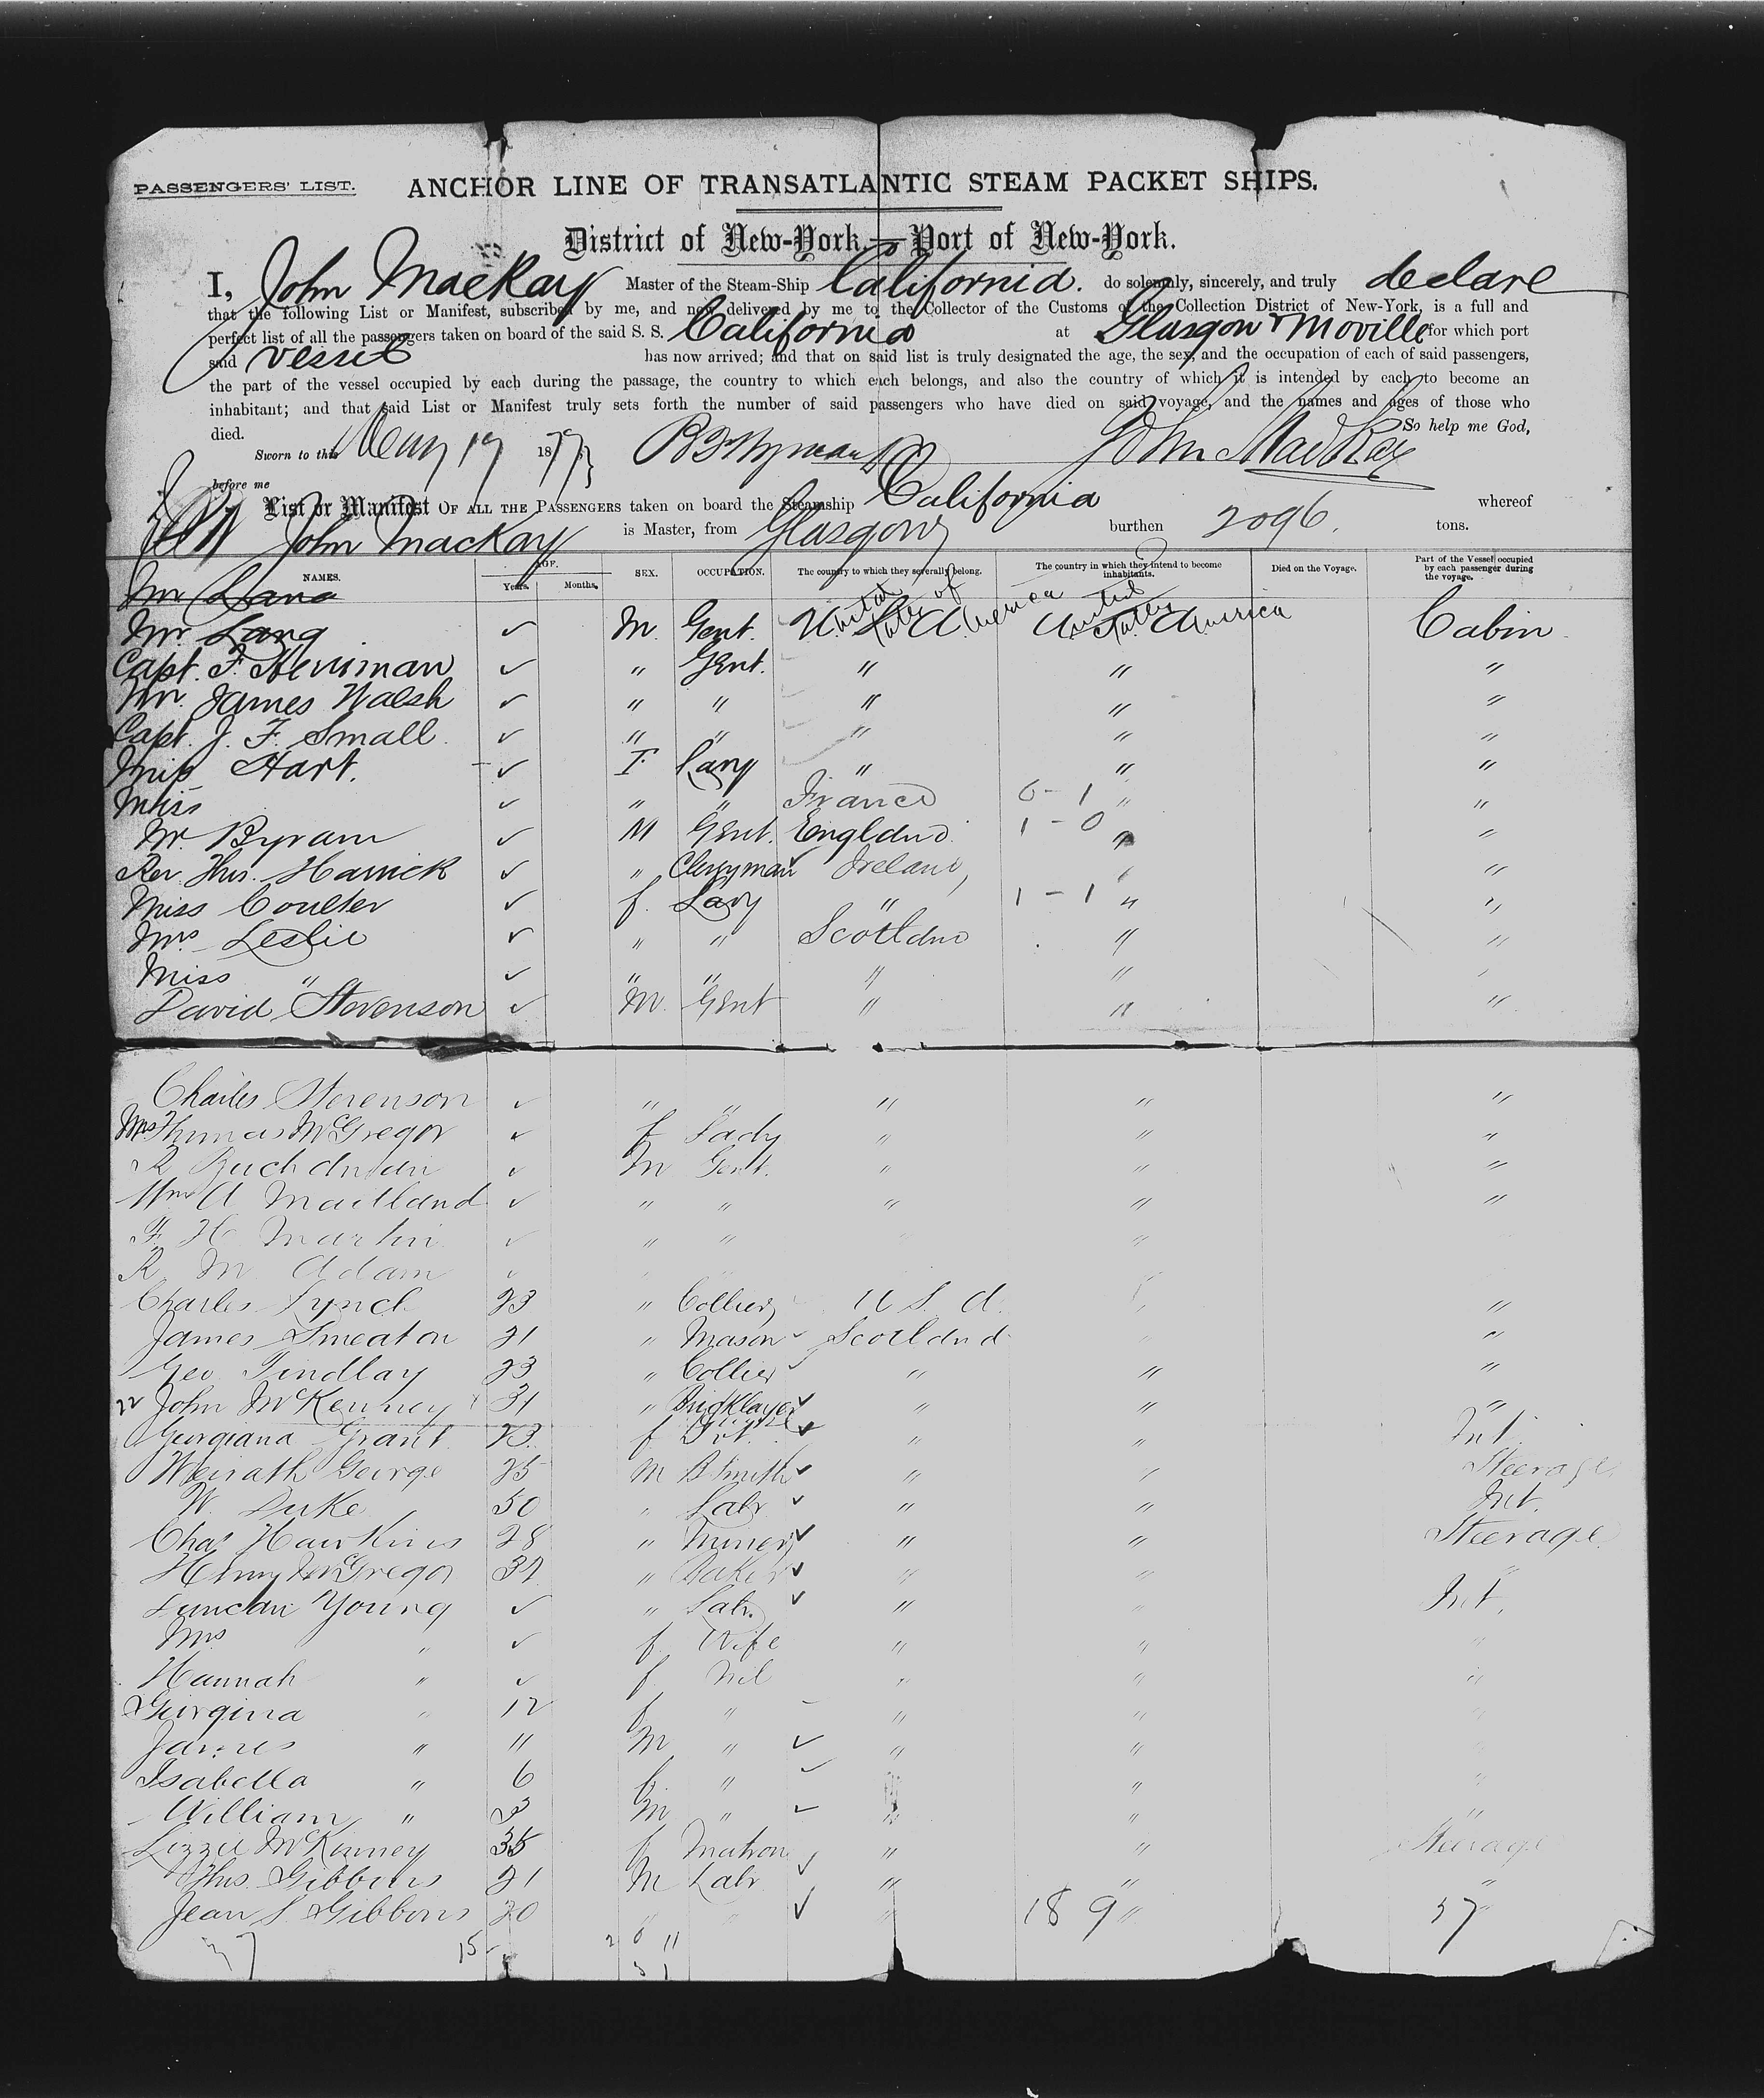 PASSENGERS' LIST.
ANCHOR LINE OF TRANSATLANTIC STEAM PACKET SHIPS.
District of New-York.—Port of New-York.
I, John MacKay Master of the Steam-Ship California. do solemnly, sincerely, and truly declare
that the following List or Manifest, subscribed by me, and now delivered by me to the Collector of the Customs of the Collection District of New-York, is a full and
perfect list of all the passengers taken on board of the said S. S. California at Glasgow & Moville for which port
said vessel has now arrived; and that on said list is truly designated the age, the sex, and the occupation of each of said passengers,
the part of the vessel occupied by each during the passage, the country to which each belongs, and also the country of which it is intended by each to become an
inhabitant; and that said List or Manifest truly sets forth the number of said passengers who have died on said voyage, and the names and ages of those who
died. So help me God,
Sworn to this May 19 1879 John MacKay
before me
List or Manifest OF ALL THE PASSENGERS taken on board the Steamship California whereof
John MacKay is Master, from Glasgow burthen 2096. tons.
NAMES. AGE. Years. Months. SEX. OCCUPATION. The country to which they severally belong. The country in which they intend to become inhabitants. Died on the Voyage. Part of the Vessel occupied by each passenger during the voyage.
Mr Lang
Mr. Lang ✓ M. Gent. United States of America United States America Cabin
Capt. F. Herriman ✓ " Gent. " " "
Mr. James Walsh ✓ " " " " "
Capt. J. F. Small ✓ " " " " "
Miss Hart. ✓ F Lady " " "
Miss ✓ " " France 0-1 " "
Mr Byram ✓ M Gent. England 1-0 " "
Rev. Thos. Hamick ✓ " Clergyman Ireland " "
Miss Coulter ✓ f. Lady " 1-1 " "
Mrs Leslie ✓ " " Scotland " "
Miss " ✓ " " " " "
David Stevenson ✓ M. Gent " " "
Charles Stevenson ✓ " " " " "
Mrs Thomas McGregor ✓ f Lady " " "
R Buchanan ✓ M Gent. " " "
Wm A Maitland ✓ " " " " "
F. H Martin ✓ " " "
R. M. Adam ✓
Charles Lynch 23 " Collier U S A. "
James Smeaton 21 " Mason Scotland "
Geo Findlay 23 " Collier " " "
22 John McKenney 31 " Bricklayer ✓ " " "
Georgiana Grant 23. f ✓ " " Int.
Weirath George 25 M B Smith ✓ " " Steerage
W. Duke 50 " Labr ✓ " " Int.
Chas Hawkins 28 " Miner ✓ " " Steerage
Henry McGregor 37 " Baker ✓ " " "
Duncan Young ✓ " Labr. ✓ " " Int.
Mrs " ✓ f Wife " " "
Hannah " ✓ f Nil " " "
Georgina " 12 f " " "
James " 11 M " ✓ " "
Isabella " 6 f. " ✓ " "
William " 3 M " ✓ " " "
Lizzie McKinney 35 f Matron " " Steerage
Thos. Gibbons 21 M Labr ✓ " " "
Jean S. Gibbons 20 " " ✓ " 18 9 " 37
37 15 2 6 11
5 1